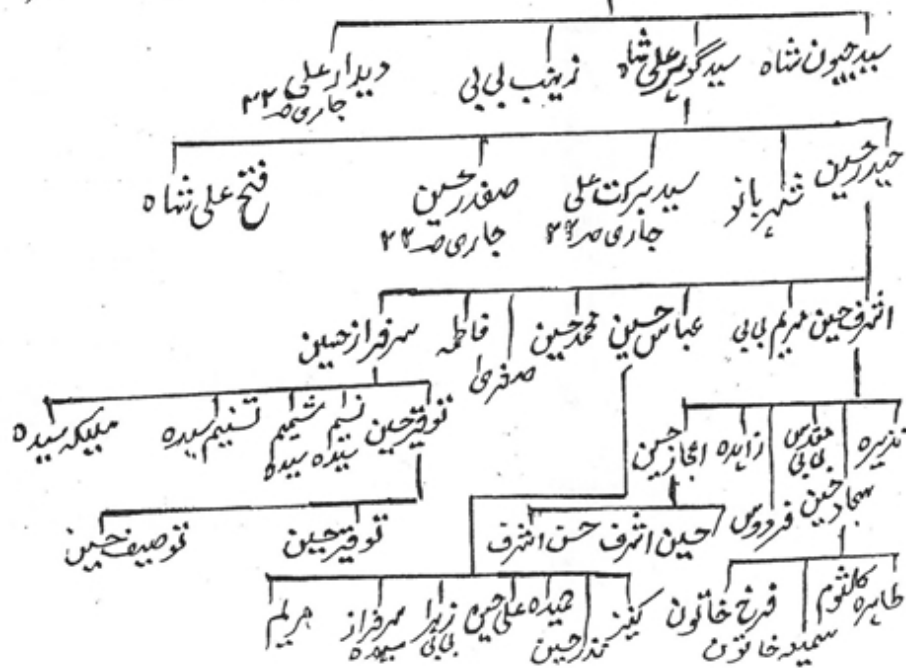 سید جیون شاہ
سید گوہر علی شاہ
زینب بی بی
دیدار علی
جاری صہ ۳۳
حیدر حسین
شہر بانو
سید برکت علی
جاری صہ ۳۲
صفدر حسین
جاری صہ ۳۲
فتح علی شاہ
اشرف حسین
مریم بی بی
عباس حسین
محمد حسین
صفری
فاطمہ
سرفراز حسین
نذیرہ
سجاد حسین
مقدس بی بی
فردوس
زاہدہ
اعجاز حسین
توقیر حسین
نسیم سیدہ
شمیم سیدہ
تسنیم سیدہ
ملیکہ سیدہ
حسین اشرف
حسن اشرف
توقیر حسین
توصیف حسین
طاہرہ
کلثوم
سمیعہ خاتون
فرخ خاتون
کنیز
نذر حسین
حمیدہ
علی حسین
زہرا بی بی
سرفراز سیدہ
مریم